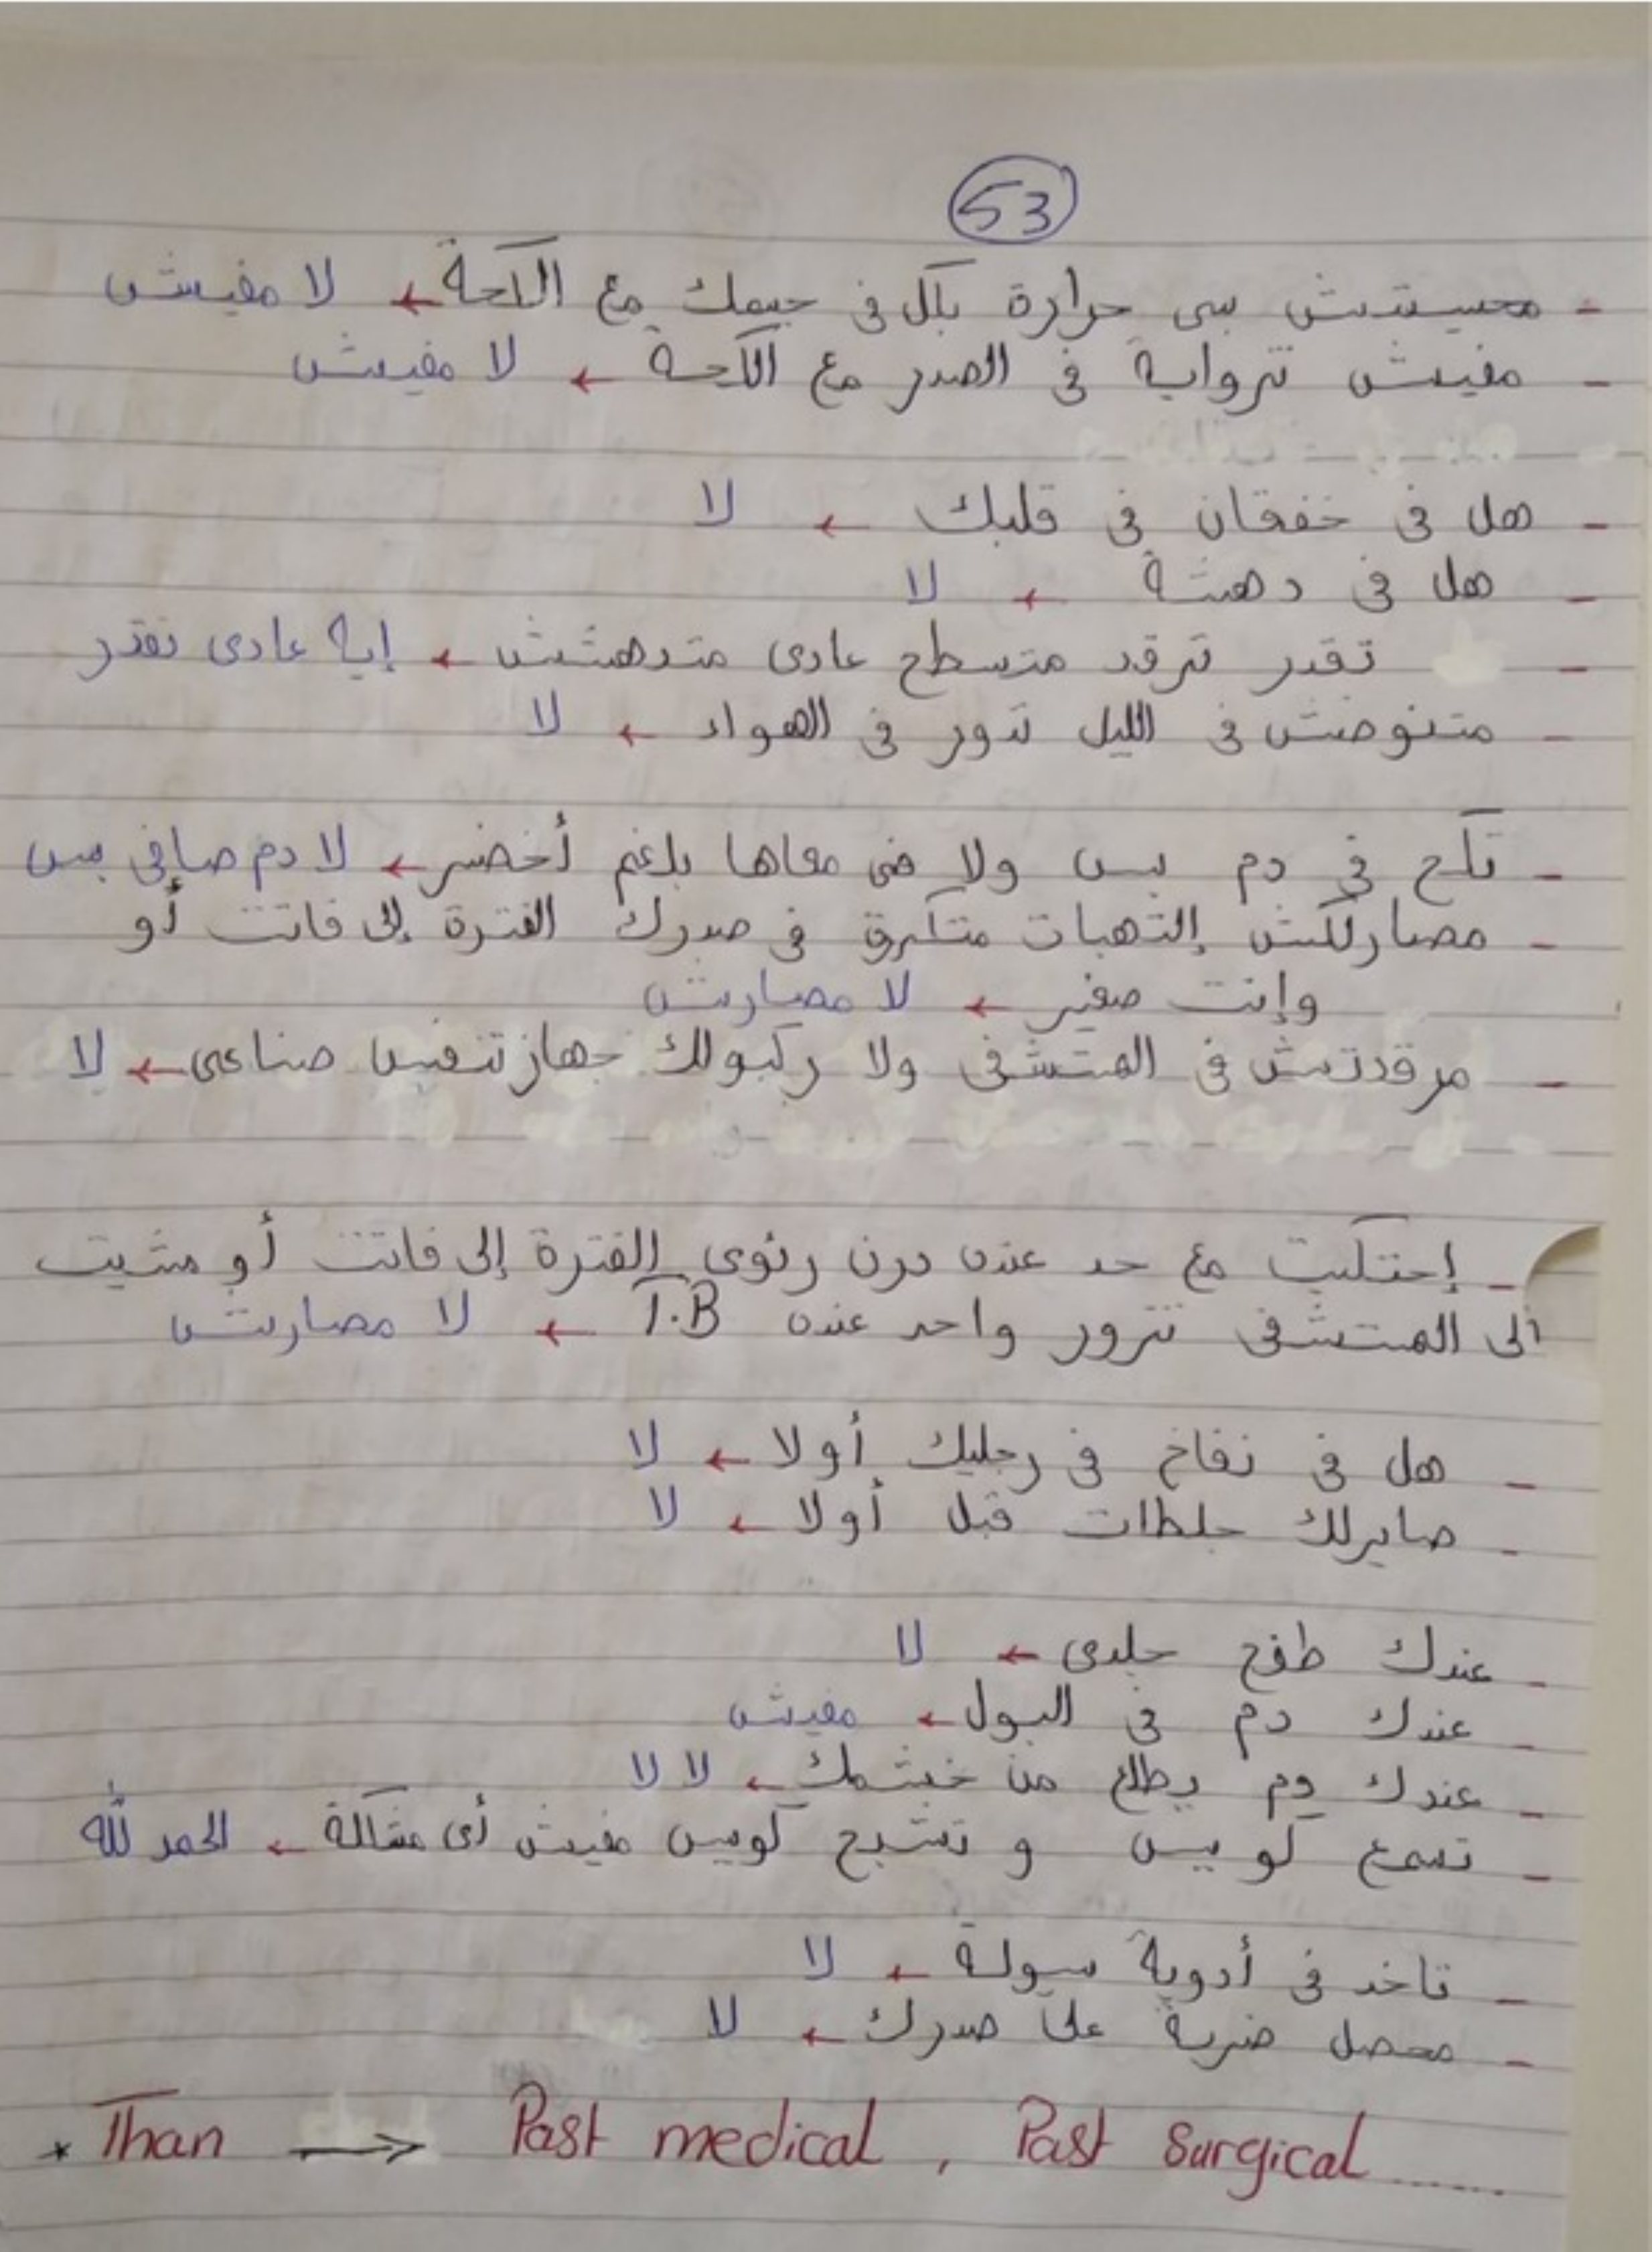 53
- محسيتش بي حرارة بكل في جسمك مع الكحة ← لا مفيش
- مفيش تزواية في الصدر مع الكحة ← لا مفيش
- هل في خفقان في قلبك ← لا
- هل في دهشة ← لا
- تقدر ترقد متسطح عادى متدهشش ← إيه عادى نقدر
- متنوضش في الليل تدور في الهواء ← لا
- تكح في دم بس ولا في معاها بلغم أخضر ← لا دم صافي بس
- مصارلكش إلتهبات متكررة في صدرك الفترة إلى فاتت أو
وإنت صغير ← لا مصاريش
- مرقدتش في المتشفى ولا ركبولك جهاز تنفس صناعى ← لا
- إحتكيت مع حد عنده درن رئوى الفترة إلى فاتت أو مشيت
ألى المتشفى تزور واحد عنده T.B ← لا مصاريش
- هل في نفاخ في رجليك أولا ← لا
- صايرلك جلطات قبل أولا ← لا
- عندك طفح جلدى ← لا
- عندك دم في البول ← مفيش
- عندك دم يطلع من خشمك ← لا لا
- تسمع كويس و تشبح كويس مفيش أى مشكلة ← الحمد لله
- تاخد في أدوية سيولة ← لا
- محصل ضربة على صدرك ← لا
* Than → Past medical , Past surgical ......